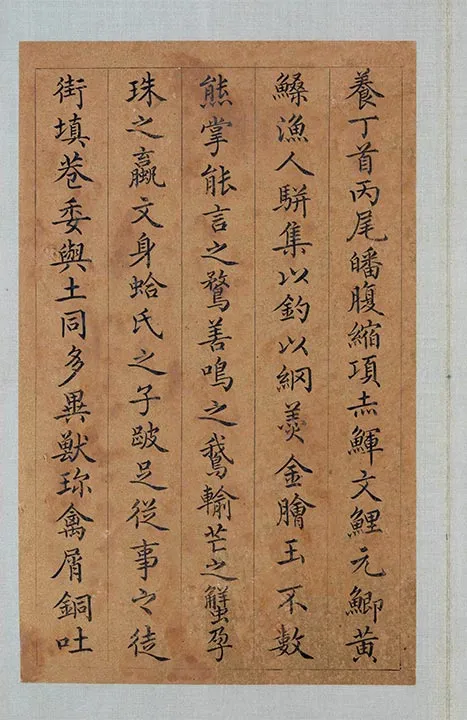 養丁首丙尾皤腹縮項赤鯶文鯉元鯽黃
鱨漁人駢集以釣以網羹金膾玉不數
熊掌能言之鶩善鳴之鵝輸芒之蟹孕
珠之蠃文身蛤氏之子跛足從事之徒
街填巷委與土同多異獸珍禽屑銅吐